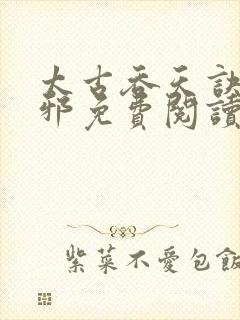 太古吞天訣
邪免費閱讀
紫菜不愛包飯